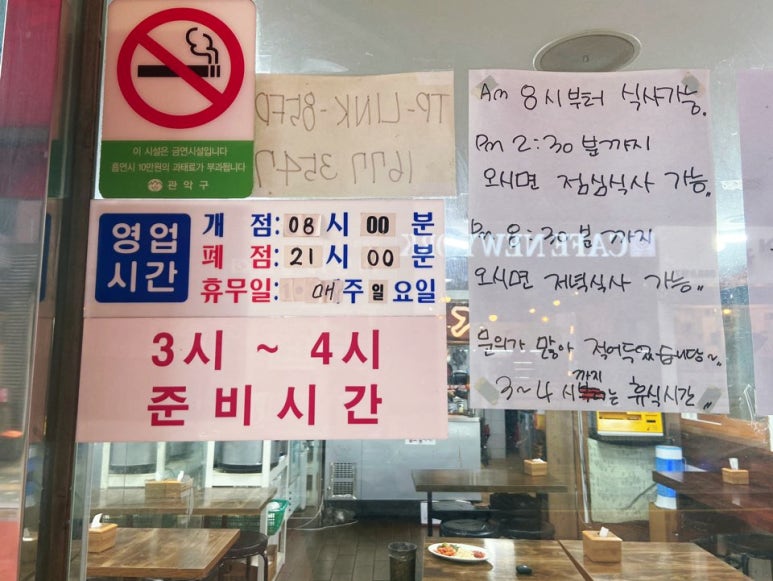 이 시설은 금연시설입니다
흡연시 10만원의 과태료가 부과됩니다
관악구
TP-LINK-85FD
1677 3547
영업
시간
개 점: 08 시 00 분
폐 점: 21 시 00 분
휴무일: 매주 일 요일
3시 ~ 4시
준비시간
Am 8시부터 식사가능.
Pm 2:30 분까지
오시면 점심식사 가능..
Pm 8:30 분까지
오시면 저녁식사 가능..
문의가 많아 적어두었습니다~.
3~4 시까지는 휴식시간..
CAFE NEW YORK